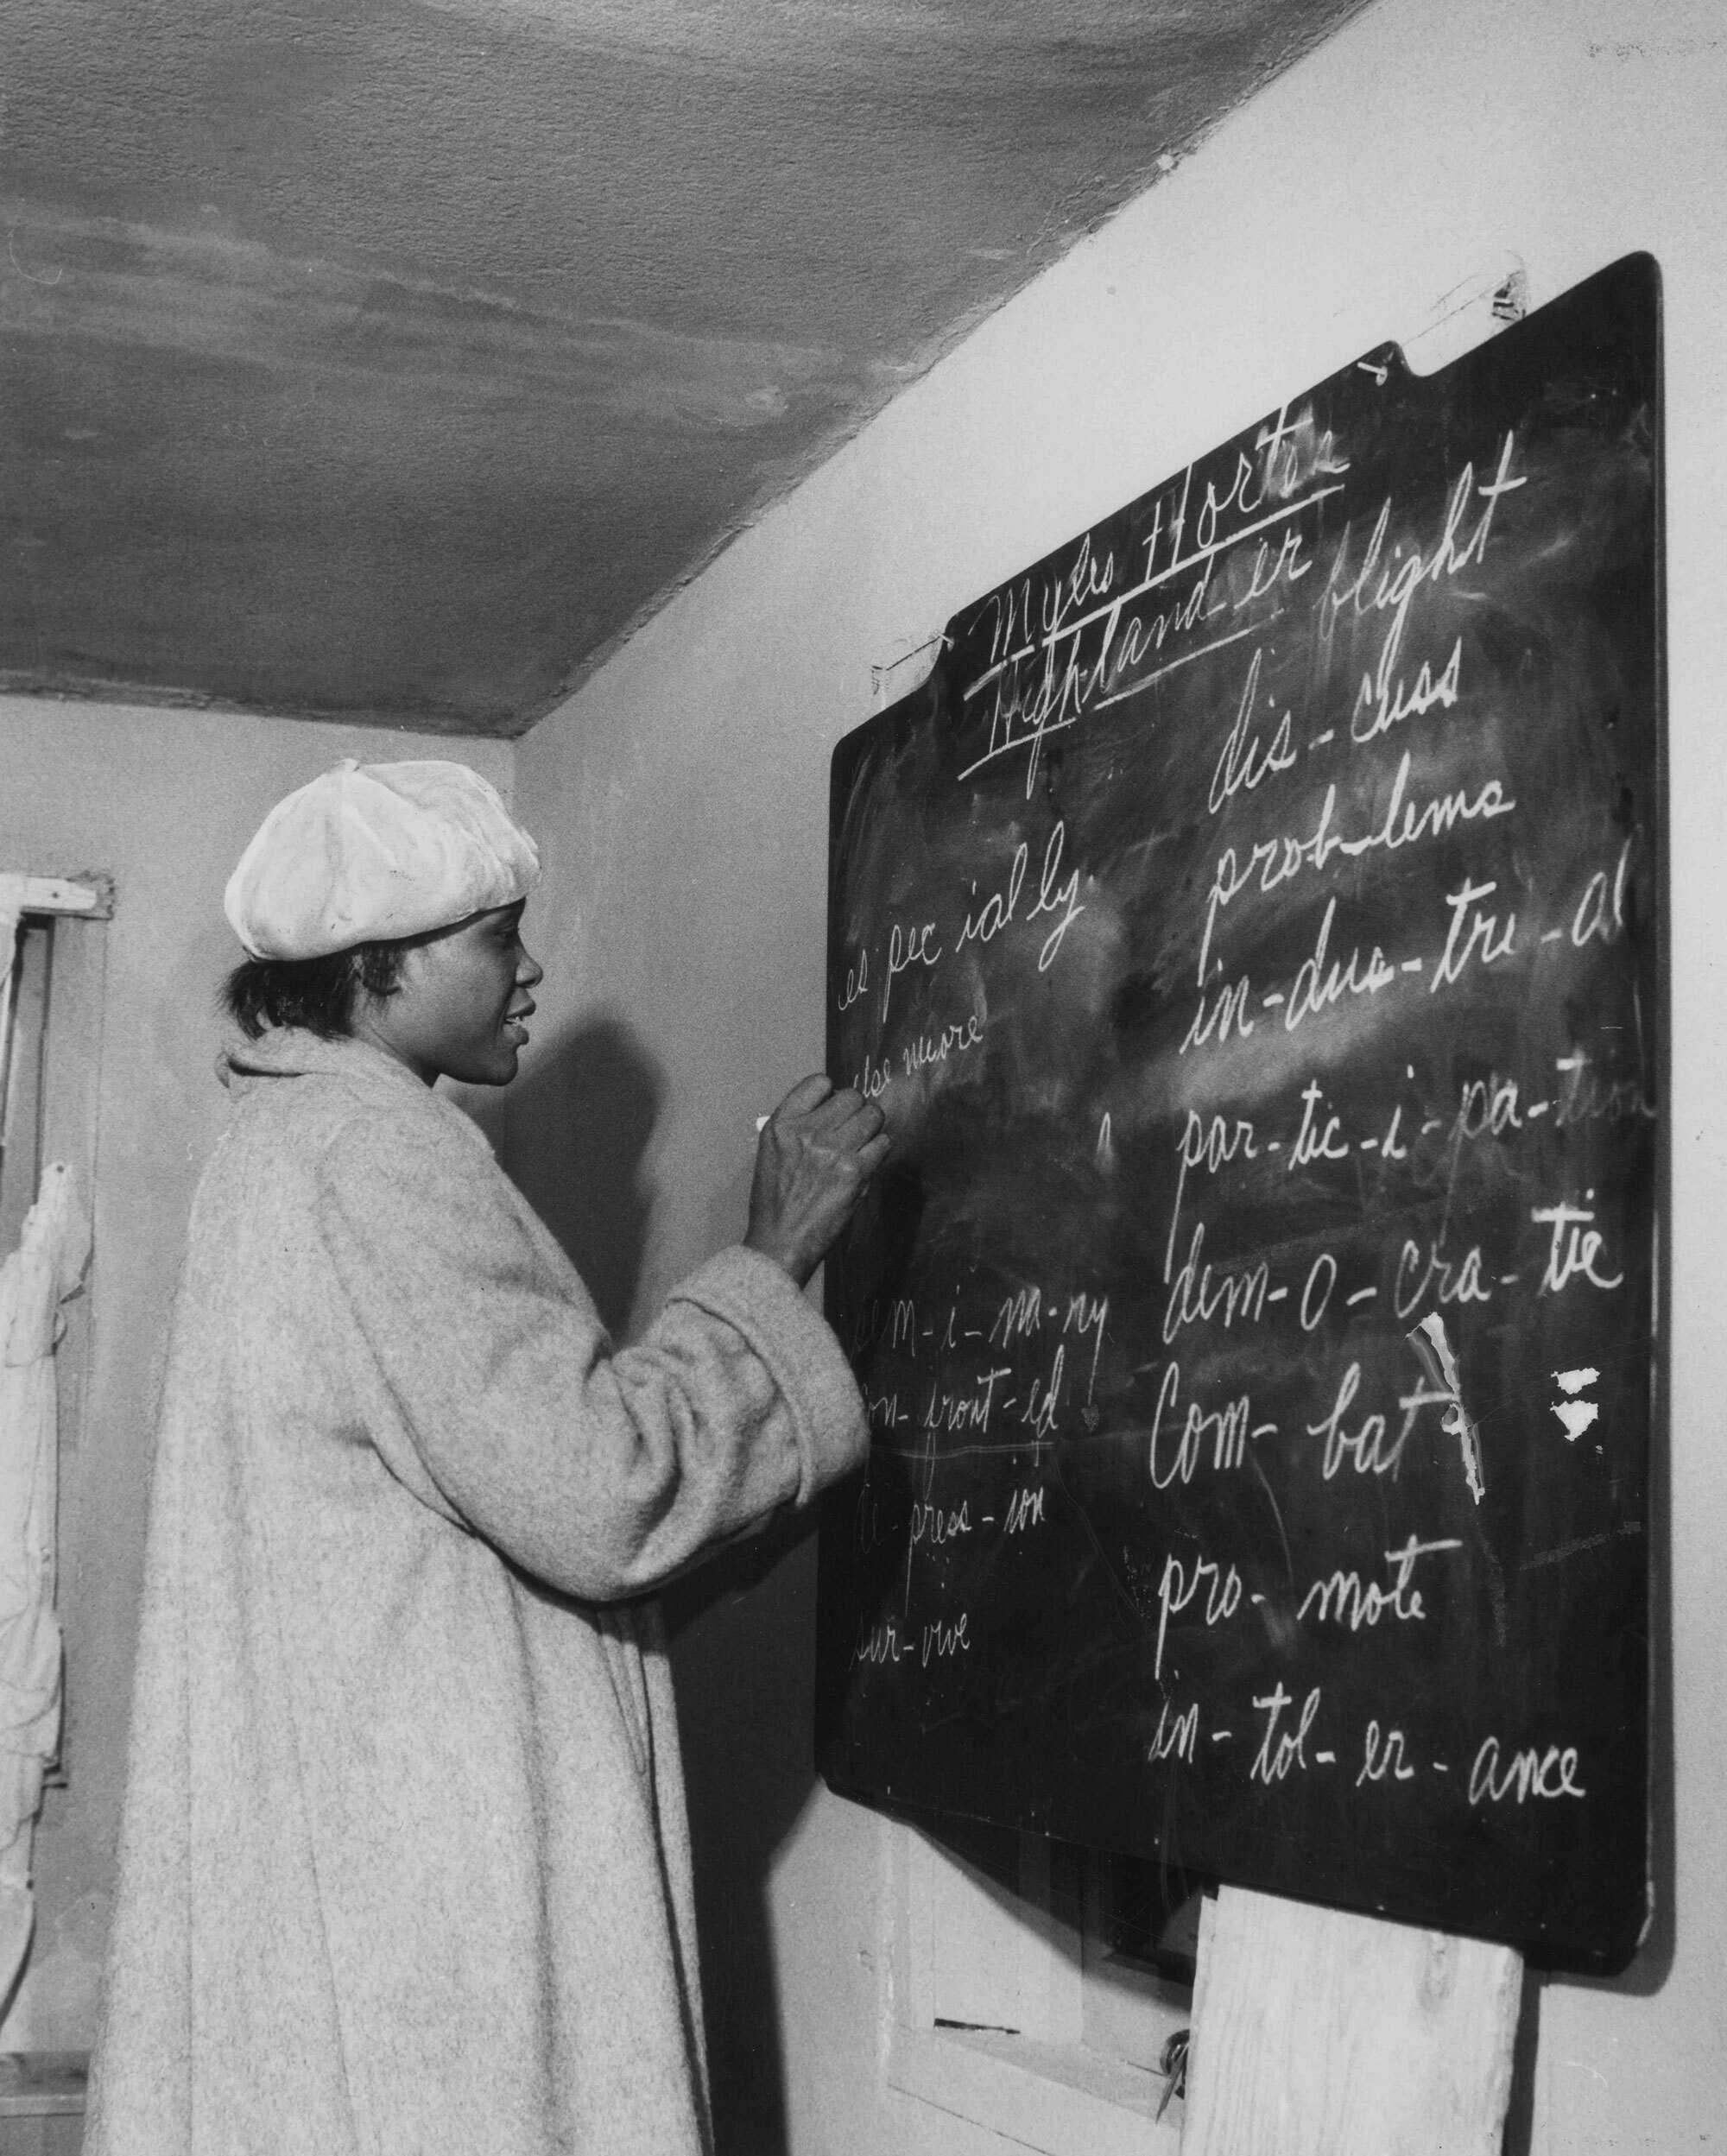 Myles Horton
High-land-er blight
dis-cuss
prob-lems
in-dus-tri-al
par-tic-i-pa-tion
dem-o-cra-tic
Com-bat
pro-mote
in-tol-er-ance
es pec ial ly
sem-i-na-ry
on-front-ed
de-press-ion
sur-vive